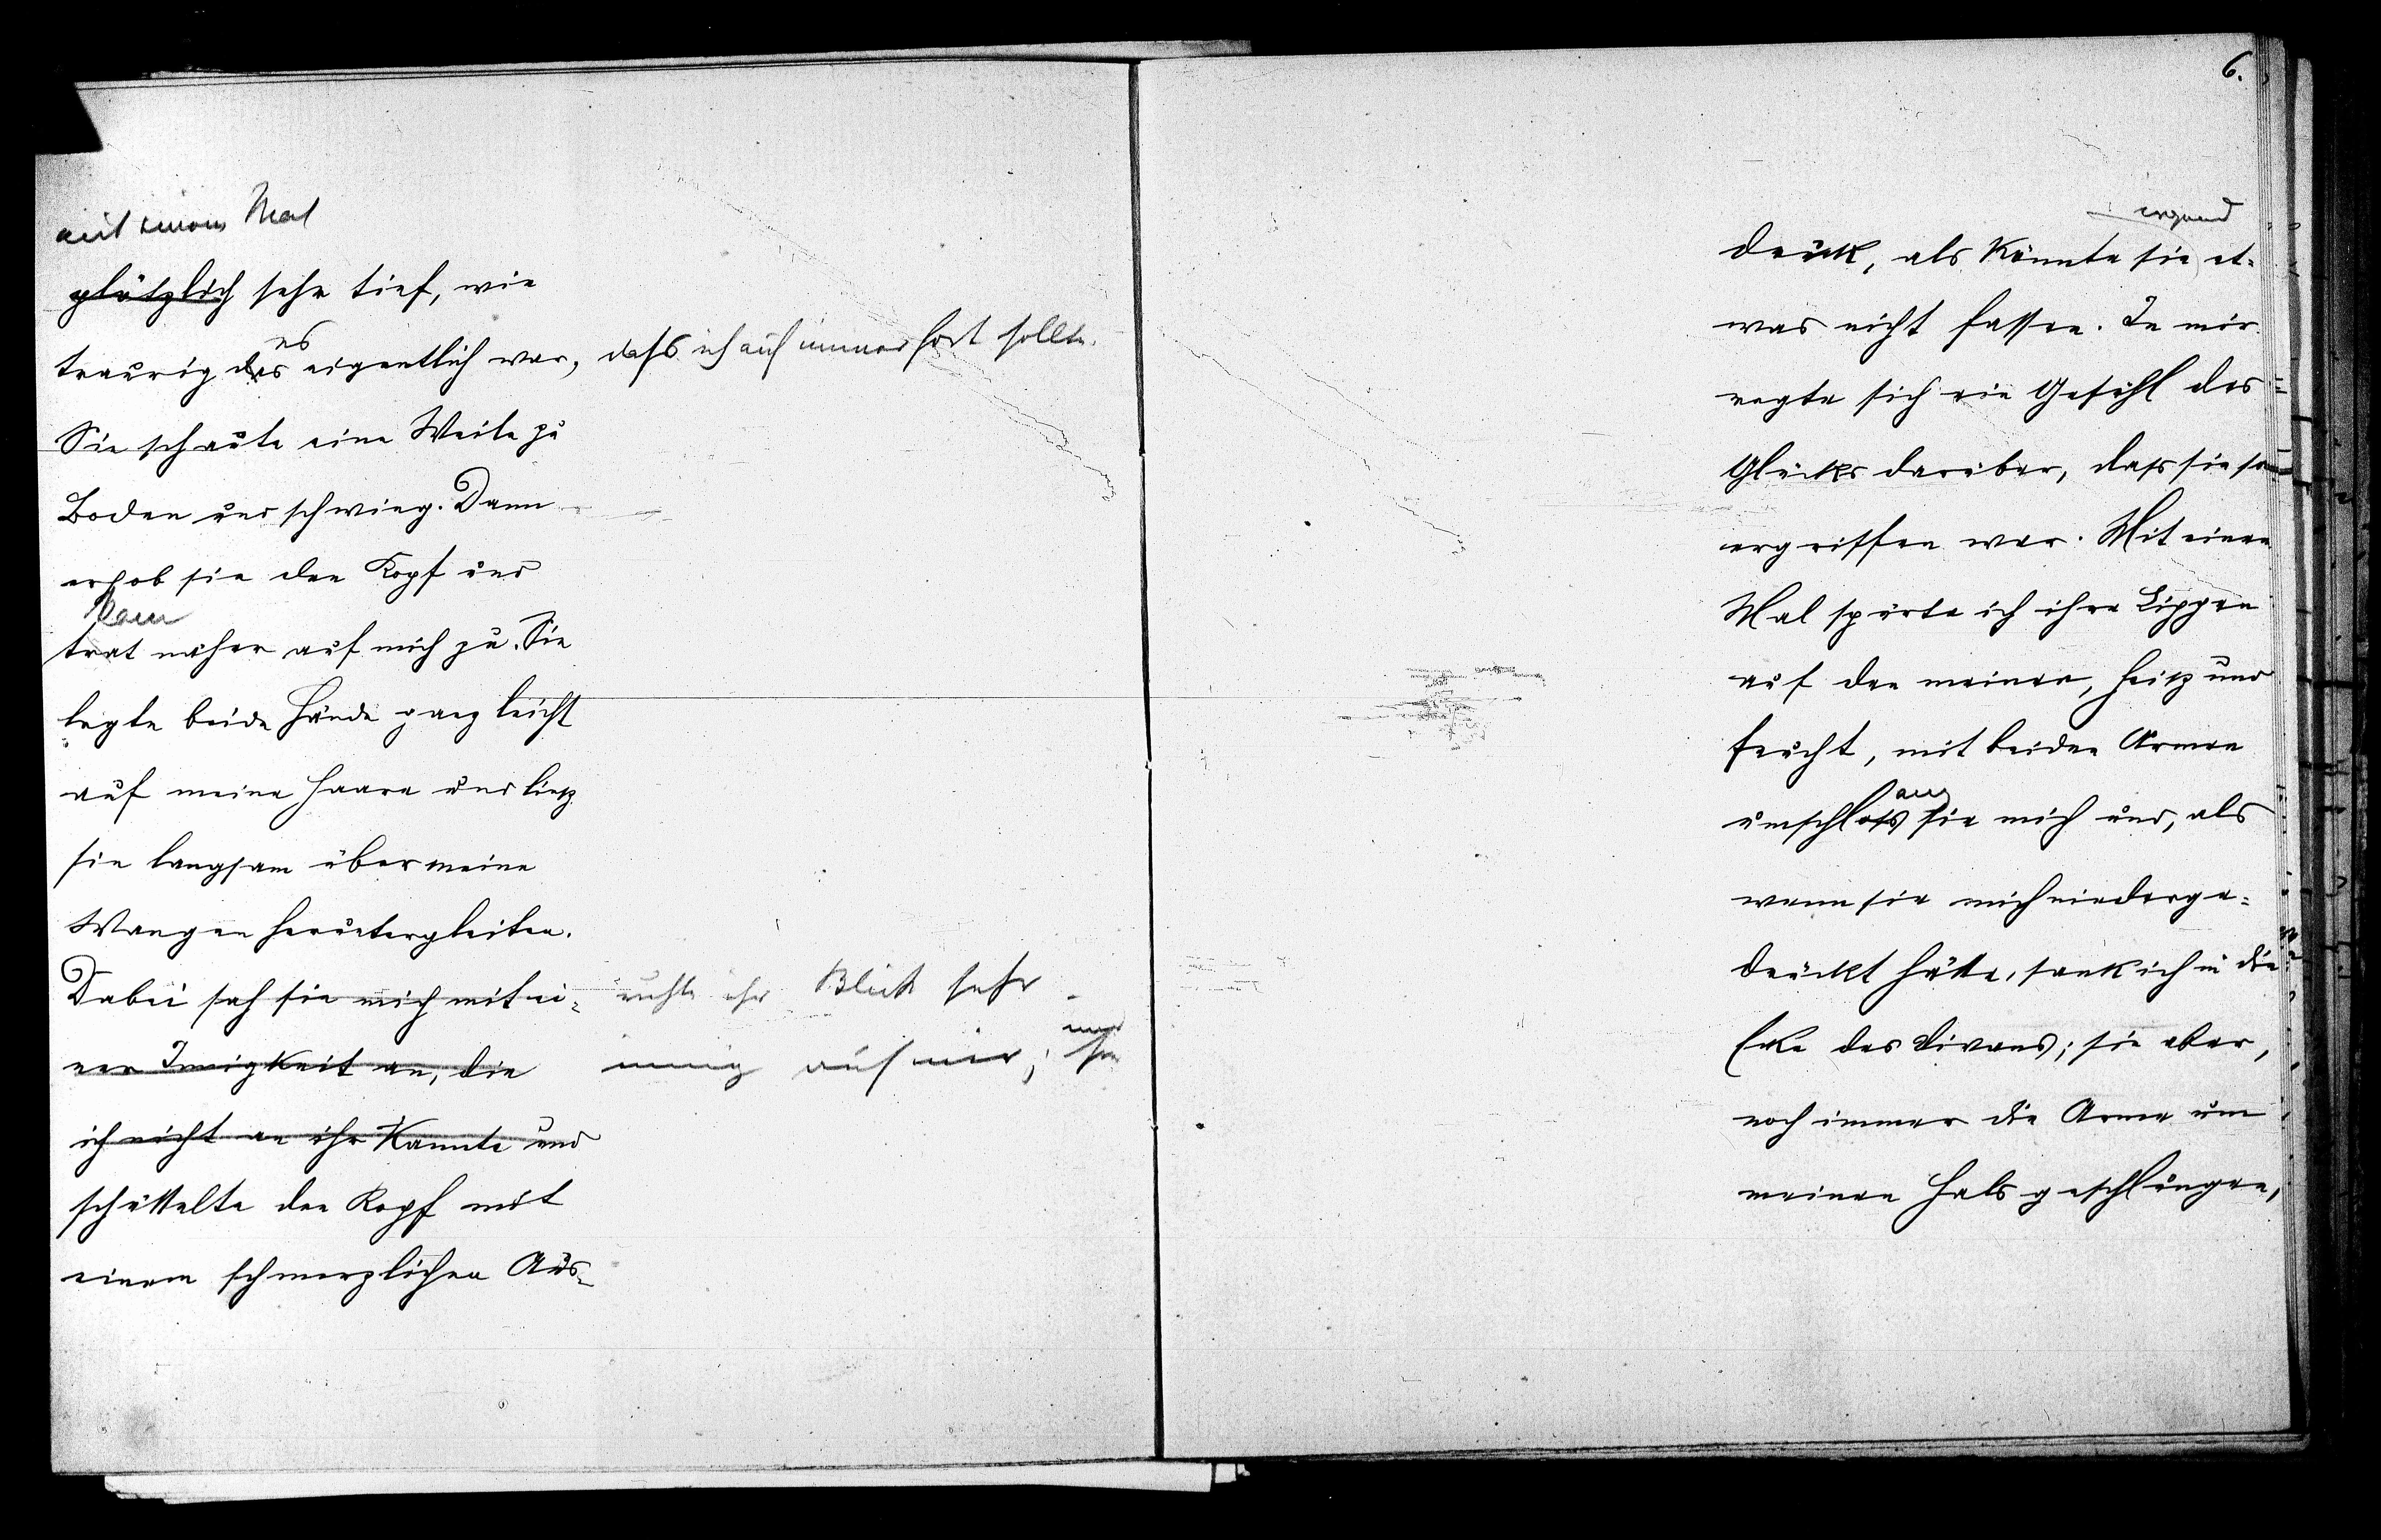 mit einem Mal
plötzlich sehr tief, wie
es
traurig das eigentlich war, dass ich auf immer fort sollte.
Sie schaute eine Weile zu
Boden und schwieg. Dann
erhob sie den Kopf und
kam
trat näher auf mich zu. Sie
legte beide Hände ganz leicht
auf meine Haare und liesz
sie langsam über meine
Wangen heruntergleiten.
Dabei sah sie mich mit ei- ruhte ihr Blick sehr
ner Innigkeit an, die innig auf mir; und sie
ich nicht an ihr kannte und
schüttelte den Kopf mit
einem schmerzlichen Aus-
6.
irgend
druck, als könnte sie et-
was nicht fassen. In mir
regte sich ein Gefühl des
Glückes darüber, dass sie so
ergriffen war. Mit einem
Mal spürte ich ihre Lippen
auf den meinen, heisz und
feucht, mit beiden Armen
ang
umschloss sie mich und, als
wenn sie mich niederge-
drückt hätte, sank ich in die
Ecke des Divans; sie aber,
noch immer die Arme um
meinen Hals geschlungen,